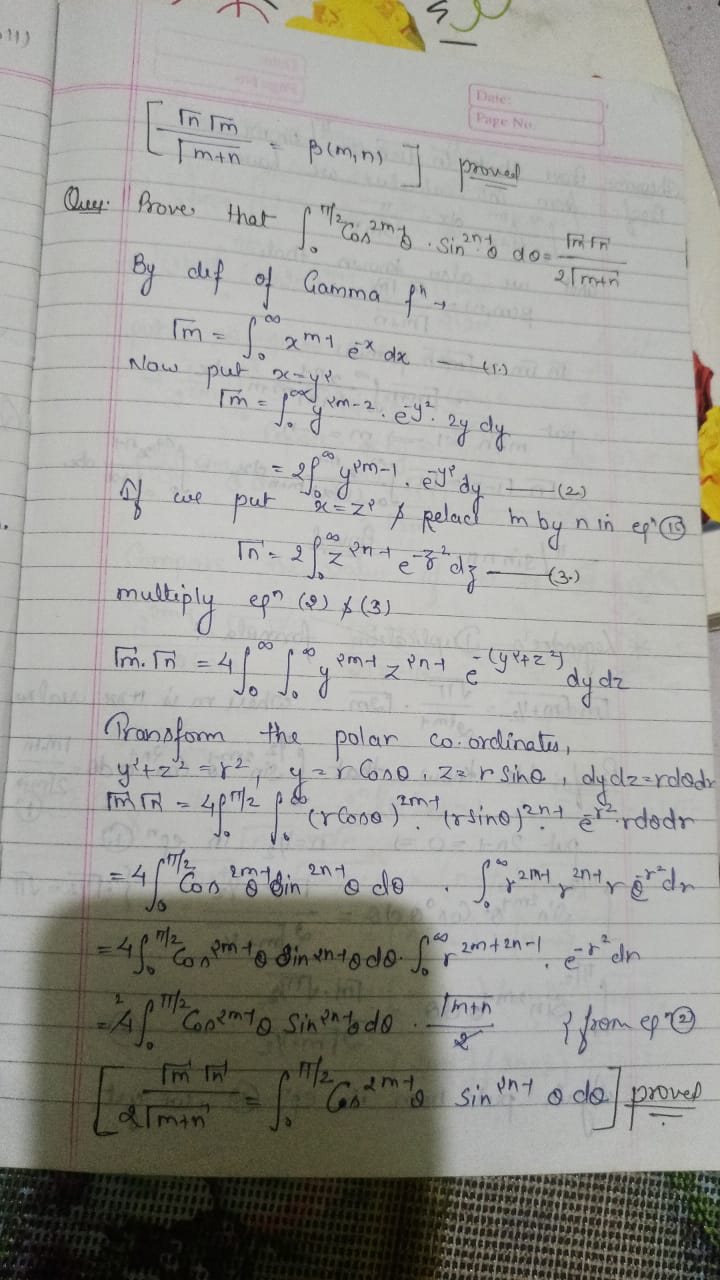 11)
Date:
Page No.
[ Γn Γm / Γm+n = β(m,n) ] proved
Ques. Prove that ∫₀^π/2 Cos^2m-1 θ . sin^2n-1 θ dθ = Γm Γn / 2Γm+n
By def of Gamma fⁿ →
Γm = ∫₀^∞ x^m-1 e^-x dx —— (1.)
Now put x = y²
Γm = ∫₀^∞ y^2m-2 . e^-y² . 2y dy
= 2∫₀^∞ y^2m-1 . e^-y² dy —— (2)
If we put x = z² & relact m by n in eqⁿ (1)
Γn = 2∫₀^∞ z^2n-1 e^-z² dz —— (3.)
multiply eqⁿ (2) & (3)
Γm . Γn = 4∫₀^∞ ∫₀^∞ y^2m-1 z^2n-1 e^-(y²+z²) dy dz
Transform the polar co-ordinates,
y²+z² = r², y = r Cosθ, z = r Sinθ, dydz = rdθdr
Γm Γn = 4∫₀^π/2 ∫₀^∞ (r Cosθ)^2m-1 . (r sinθ)^2n-1 . e^-r² . rdθdr
= 4∫₀^π/2 Cos^2m-1 θ Sin^2n-1 θ dθ . ∫₀^∞ r^2m-1 r^2n-1 r e^-r² dr
= 4∫₀^π/2 Cos^2m-1 θ Sin^2n-1 θ dθ . ∫₀^∞ r^2m+2n-1 . e^-r² dr
= 4∫₀^π/2 Cos^2m-1 θ Sin^2n-1 θ dθ . Γm+n / 2 { from eqⁿ (2)
[ Γm Γn / 2Γm+n = ∫₀^π/2 Cos^2m-1 θ sin^2n-1 θ dθ ] proved